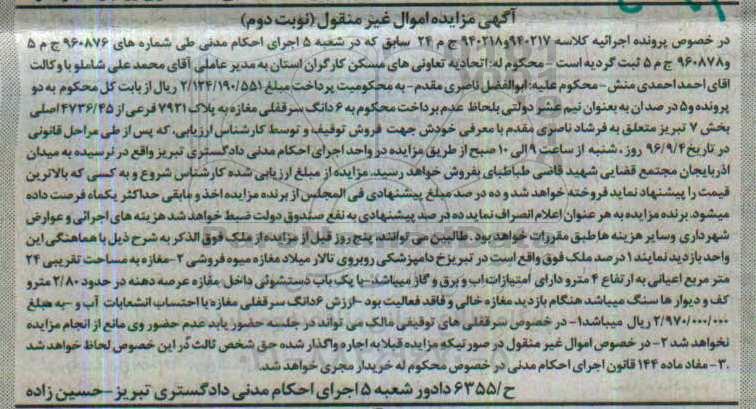 آگهی مزایده اموال غیر منقول (نوبت دوم)
در خصوص پرونده اجرائیه کلاسه ۹۴۰۲۱۷و۹۴۰۲۱۸ ج م ۲۴ سابق که در شعبه ۵ اجرای احکام مدنی طی شماره های ۹۶۰۸۷۶ ج م ۵
و۹۶۰۸۷۸ ج م ۵ ثبت گردیه است - محکوم له: اتحادیه تعاونی های مسکن کارگران استان به مدیر عاملی آقای محمد علی شاملو با وکالت
اقای احمد احمدی منش - محکوم علیه: ابوالفضل ناصری مقدم- به محکومیت پرداخت مبلغ ۲/۱۲۴/۱۹۰/۵۵۱ ریال از بابت کل محکوم به دو
پرونده و۵ در صدان به بعنوان نیم عشر دولتی بلحاظ عدم پرداخت محکوم به ۶ دانگ سرقفلی مغازه به پلاک ۷۹۲۱ فرعی از ۴۷۳۶/۴۵ اصلی
بخش ۷ تبریز متعلق به فرشاد ناصری مقدم با معرفی خودش جهت فروش توقیف و توسط کارشناس ارزیابی، که پس از طی مراحل قانونی
در تاریخ ۹۶/۹/۴ روز . شنبه از ساعت ۹ الی ۱۰ صبح از طریق مزایده در واحد اجرای احکام مدنی دادگستری تبریز واقع در نرسیده به میدان
اذربایجان مجتمع قضایی شهید قاضی طباطبای بفروش خواهد رسید. مزایده از مبلغ ارزیابی شده کارشناس شروع و به کسی که بالاترین
قیمت را پیشنهاد نماید فروخته خواهد شد و ده در صد مبلغ پیشنهادی فی المجلس از برنده مزایده اخذ و مابقی حداکثر یکماه فرصت داده
میشود. برنده مزایده به هر عنوان اعلام انصراف نماید ده در صد پیشنهادی به نفع صندوق دولت ضبط خواهد شد هزینه های اجرائی و عوارض
شهرداری وسایر هزینه ها طبق مقررات خواهد بود . طالبین می توانند پنج روز قبل از مزایده از ملک فوق الذکر به شرح ذیل با هماهنگی این
واحد بازدید نمایند ۱ درصد ملک فوق واقع است در تبریز خ دامپزشکی روبروی تالار میلاد مغازه میوه فروشی ۲-مغازه به مساحت تقریبی ۲۴
متر مربع اعیانی به ارتفاع ۴ مترو دارای امتیازات اب و برق و گاز میباشد-با یک باب دستشوئی داخل مغازه عرصه دهنه در حدود ۲/۸۰ مترو
کف و دیوار ها سنگ میباشد هنگام بازدید مغازه خالی و فاقد فعالیت بود -ارزش ۶دانگ سرقفلی مغازه با احتساب انشعابات آب و -به مبلغ
۲/۹۷۰/۰۰۰/۰۰۰ ریال میباشد۱- در خصوص سرقفلی های توقیفی مالک می تواند در جلسه حضور یابد عدم حضور وی مانع از انجام مزایده
نخواهد شد ۲- در خصوص اموال غیر منقول در صورتیکه مزایده قبلا به اجاره واگذار شده حق شخص ثالث در این خصوص لحاظ خواهد شد
.۳- مفاد ماده ۱۴۴ قانون اجرای احکام مدنی در خصوص محکوم له خریدار مجری خواهد شد.
ح/۶۳۵۵ دادور شعبه ۵ اجرای احکام مدنی دادگستری تبریز-حسین زاده